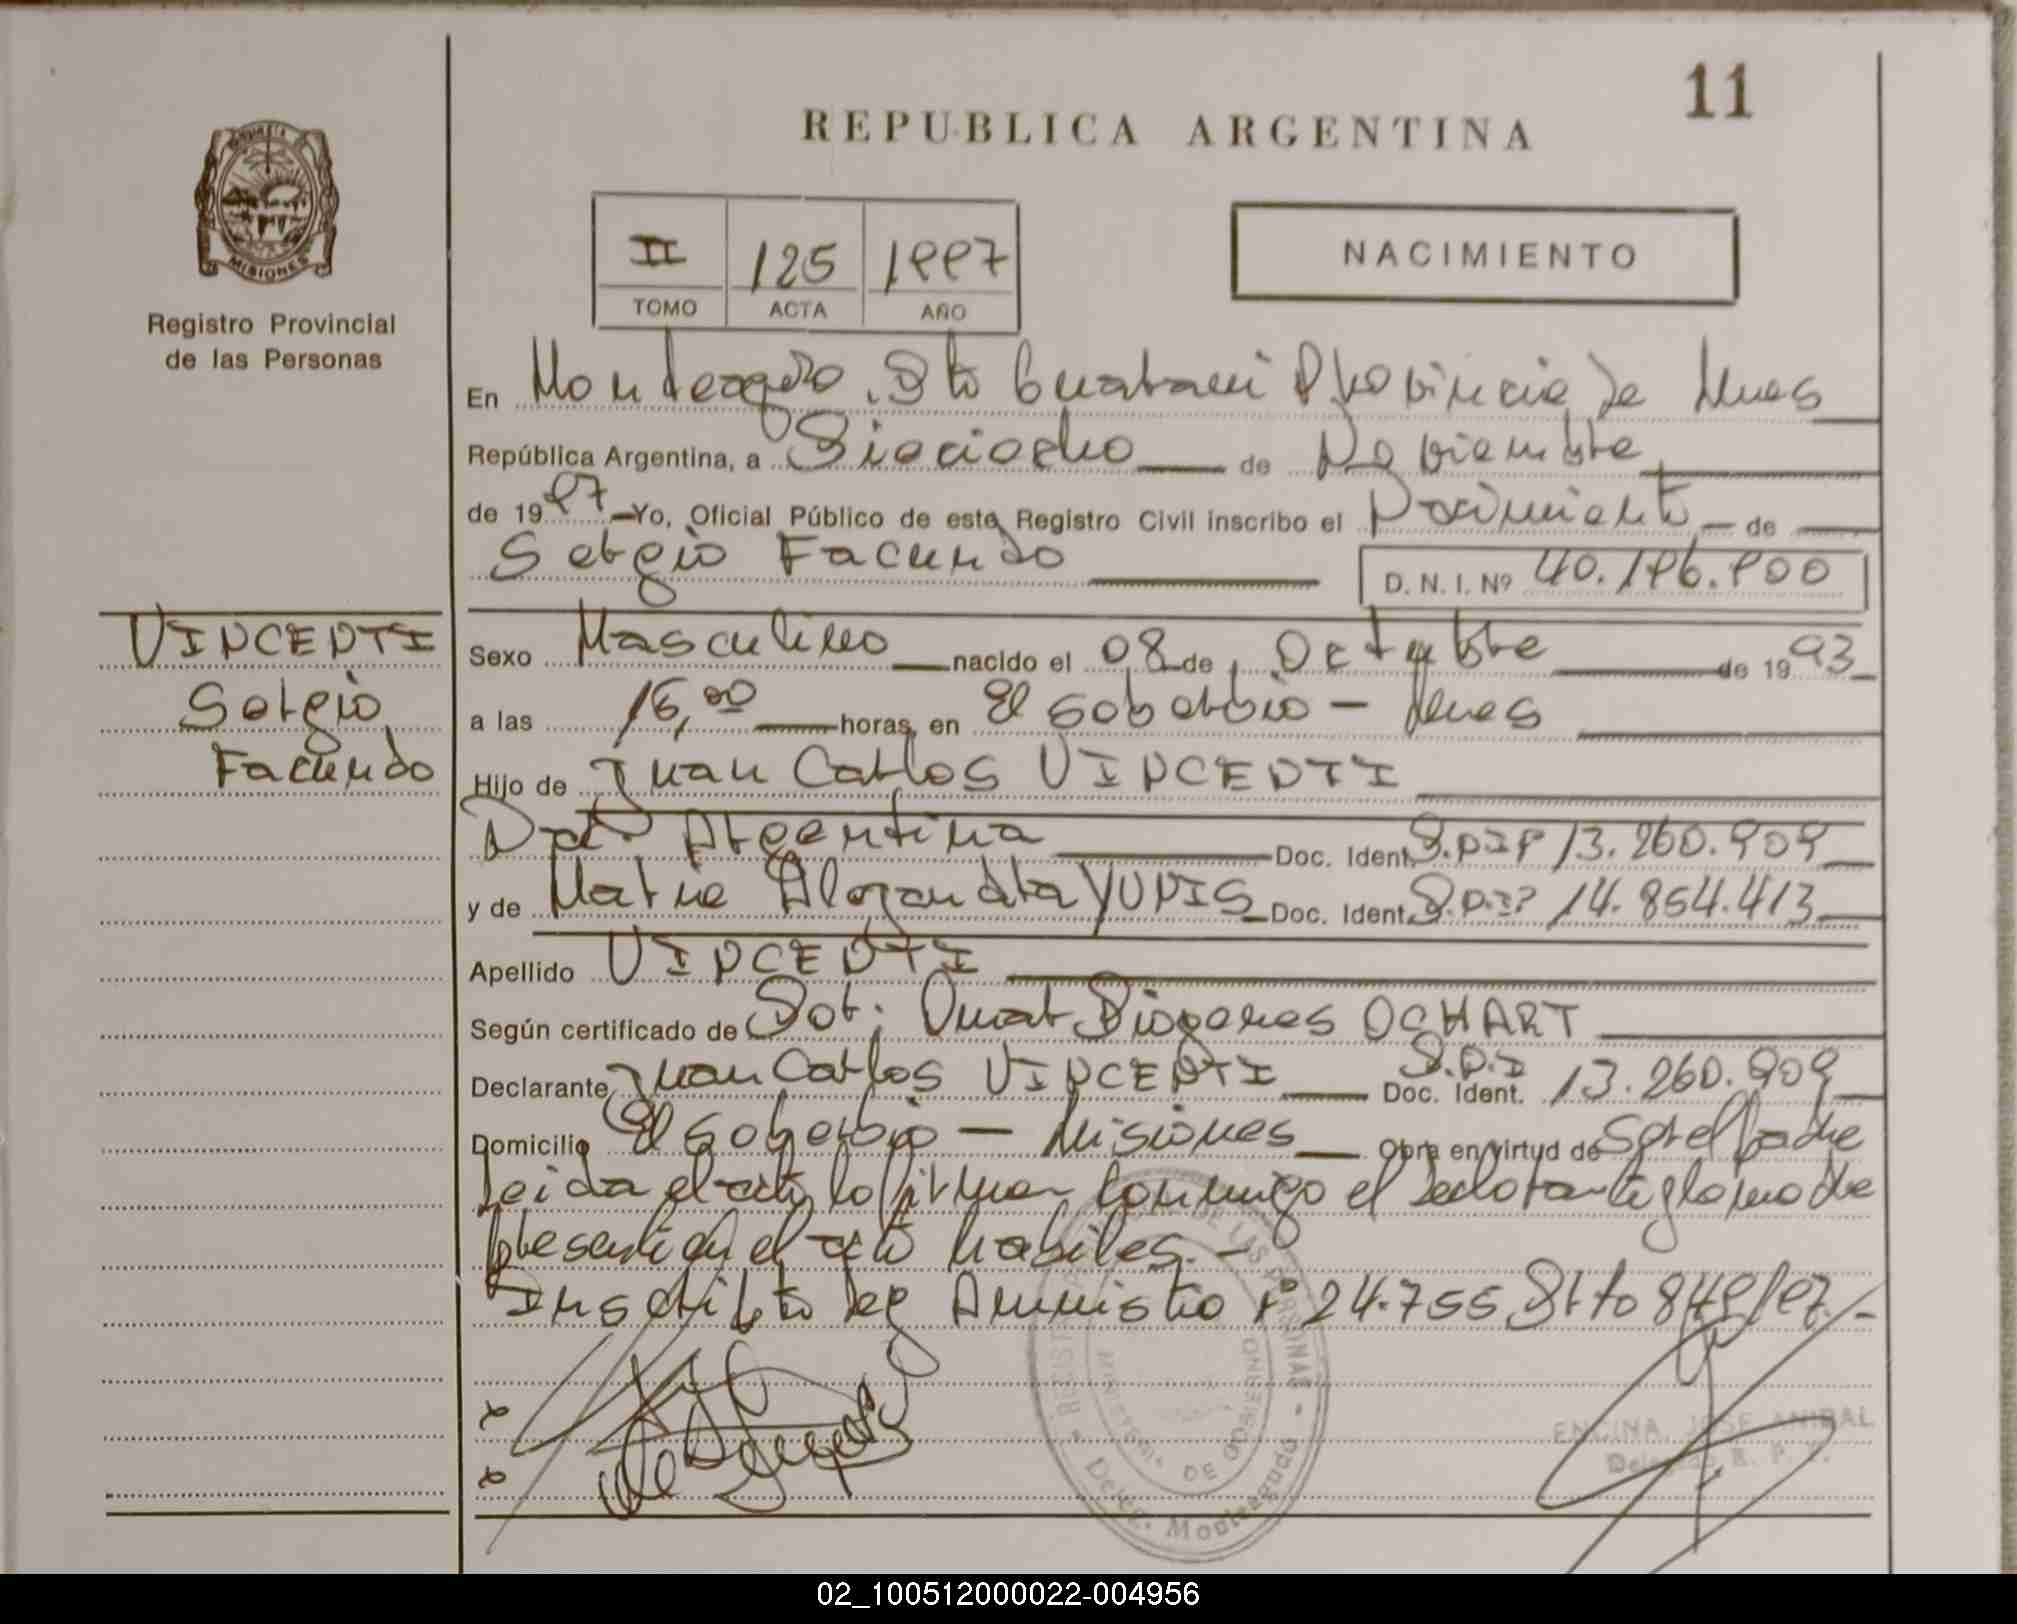 11
REPUBLICA ARGENTINA
MISIONES
Registro Provincial
de las Personas
II 125 1997
TOMO ACTA AÑO
NACIMIENTO
En Monteagudo, Dto Guarani Provincia de Mnes
República Argentina, a Dieciocho de Noviembre
de 1997 Yo, Oficial Público de este Registro Civil inscribo el Nacimiento de
Sergio Facundo D. N. I. Nº 40.196.900
VINCENTI
Sergio
Facundo
Sexo Masculino nacido el 08 de Octubre de 1993
a las 16,00 horas, en El Soberbio - Mnes
Hijo de Juan Carlos VINCENTI
Nac. Argentina Doc. Ident. 13.260.909
y de Alejandra YUNIS Doc. Ident. 14.854.413
Apellido VINCENTI
Según certificado de Dor: Omar Diogenes OCHART
Declarante Juan Carlos VINCENTI Doc. Ident. D.N.I 13.260.909
Domicilio El Soberbio - Misiones Obra en virtud de Ser el padre
Leida el acta la firman conmigo el declarante y la madre
presente en el acto habiles.-
Inscripto Ley Amnistia Nº 24.755 Dto 849/97.-
ENCINA, JOSE ANIBAL
Delegado R. P. P.
REGISTRO DE LAS PERSONAS - Deleg. Monteagudo
DE GOBIERNO
02_100512000022-004956